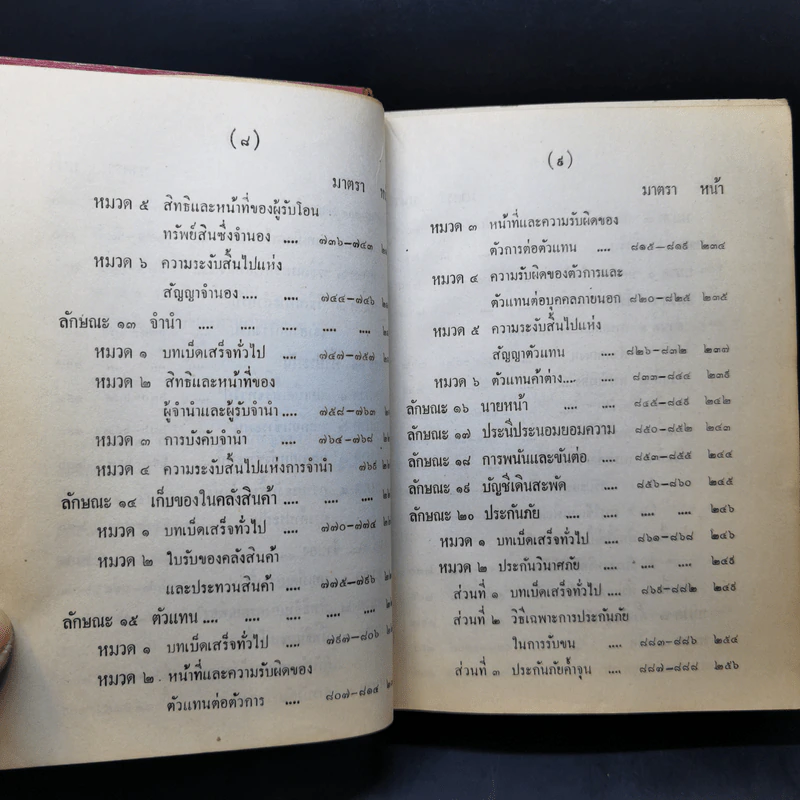 (๘)
มาตรา
หมวด ๕ สิทธิและหน้าที่ของผู้รับโอน
ทรัพย์สินซึ่งจำนอง .... ๗๓๖-๗๔๓
หมวด ๖ ความระงับสิ้นไปแห่ง
สัญญาจำนอง .... .... ๗๔๔-๗๔๖
ลักษณะ ๑๓ จำนำ .... .... .... .... ....
หมวด ๑ บทเบ็ดเสร็จทั่วไป .... ๗๔๗-๗๕๗
หมวด ๒ สิทธิและหน้าที่ของ
ผู้จำนำและผู้รับจำนำ .... ๗๕๘-๗๖๓
หมวด ๓ การบังคับจำนำ .... ๗๖๔-๗๖๘
หมวด ๔ ความระงับสิ้นไปแห่งการจำนำ ๗๖๙
ลักษณะ ๑๔ เก็บของในคลังสินค้า .... .... ....
หมวด ๑ บทเบ็ดเสร็จทั่วไป .... ๗๗๐-๗๗๔
หมวด ๒ ใบรับของคลังสินค้า
และประทวนสินค้า .... ๗๗๕-๗๙๖
ลักษณะ ๑๕ ตัวแทน .... .... .... .... ....
หมวด ๑ บทเบ็ดเสร็จทั่วไป .... ๗๙๗-๘๐๖
หมวด ๒ หน้าที่และความรับผิดของ
ตัวแทนต่อตัวการ .... ๘๐๗-๘๑๔
(๙)
มาตรา หน้า
หมวด ๓ หน้าที่และความรับผิดของ
ตัวการต่อตัวแทน .... ๘๑๕-๘๑๙ ๒๓๔
หมวด ๔ ความรับผิดของตัวการและ
ตัวแทนต่อบุคคลภายนอก ๘๒๐-๘๒๕ ๒๓๕
หมวด ๕ ความระงับสิ้นไปแห่ง
สัญญาตัวแทน .... ๘๒๖-๘๓๒ ๒๓๗
หมวด ๖ ตัวแทนค้าต่าง.... .... ๘๓๓-๘๔๔ ๒๓๙
ลักษณะ ๑๖ นายหน้า .... .... ๘๔๕-๘๔๙ ๒๔๒
ลักษณะ ๑๗ ประนีประนอมยอมความ ๘๕๐-๘๕๒ ๒๔๓
ลักษณะ ๑๘ การพนันและขันต่อ .... ๘๕๓-๘๕๕ ๒๔๔
ลักษณะ ๑๙ บัญชีเดินสะพัด .... ๘๕๖-๘๖๐ ๒๔๕
ลักษณะ ๒๐ ประกันภัย .... .... .... .... ๒๔๖
หมวด ๑ บทเบ็ดเสร็จทั่วไป .... ๘๖๑-๘๖๘ ๒๔๖
หมวด ๒ ประกันวินาศภัย .... .... .... ๒๔๙
ส่วนที่ ๑ บทเบ็ดเสร็จทั่วไป .... ๘๖๙-๘๘๒ ๒๔๙
ส่วนที่ ๒ วิธีเฉพาะการประกันภัย
ในการรับขน .... ๘๘๓-๘๘๖ ๒๕๔
ส่วนที่ ๓ ประกันภัยค้ำจุน .... ๘๘๗-๘๘๘ ๒๕๖